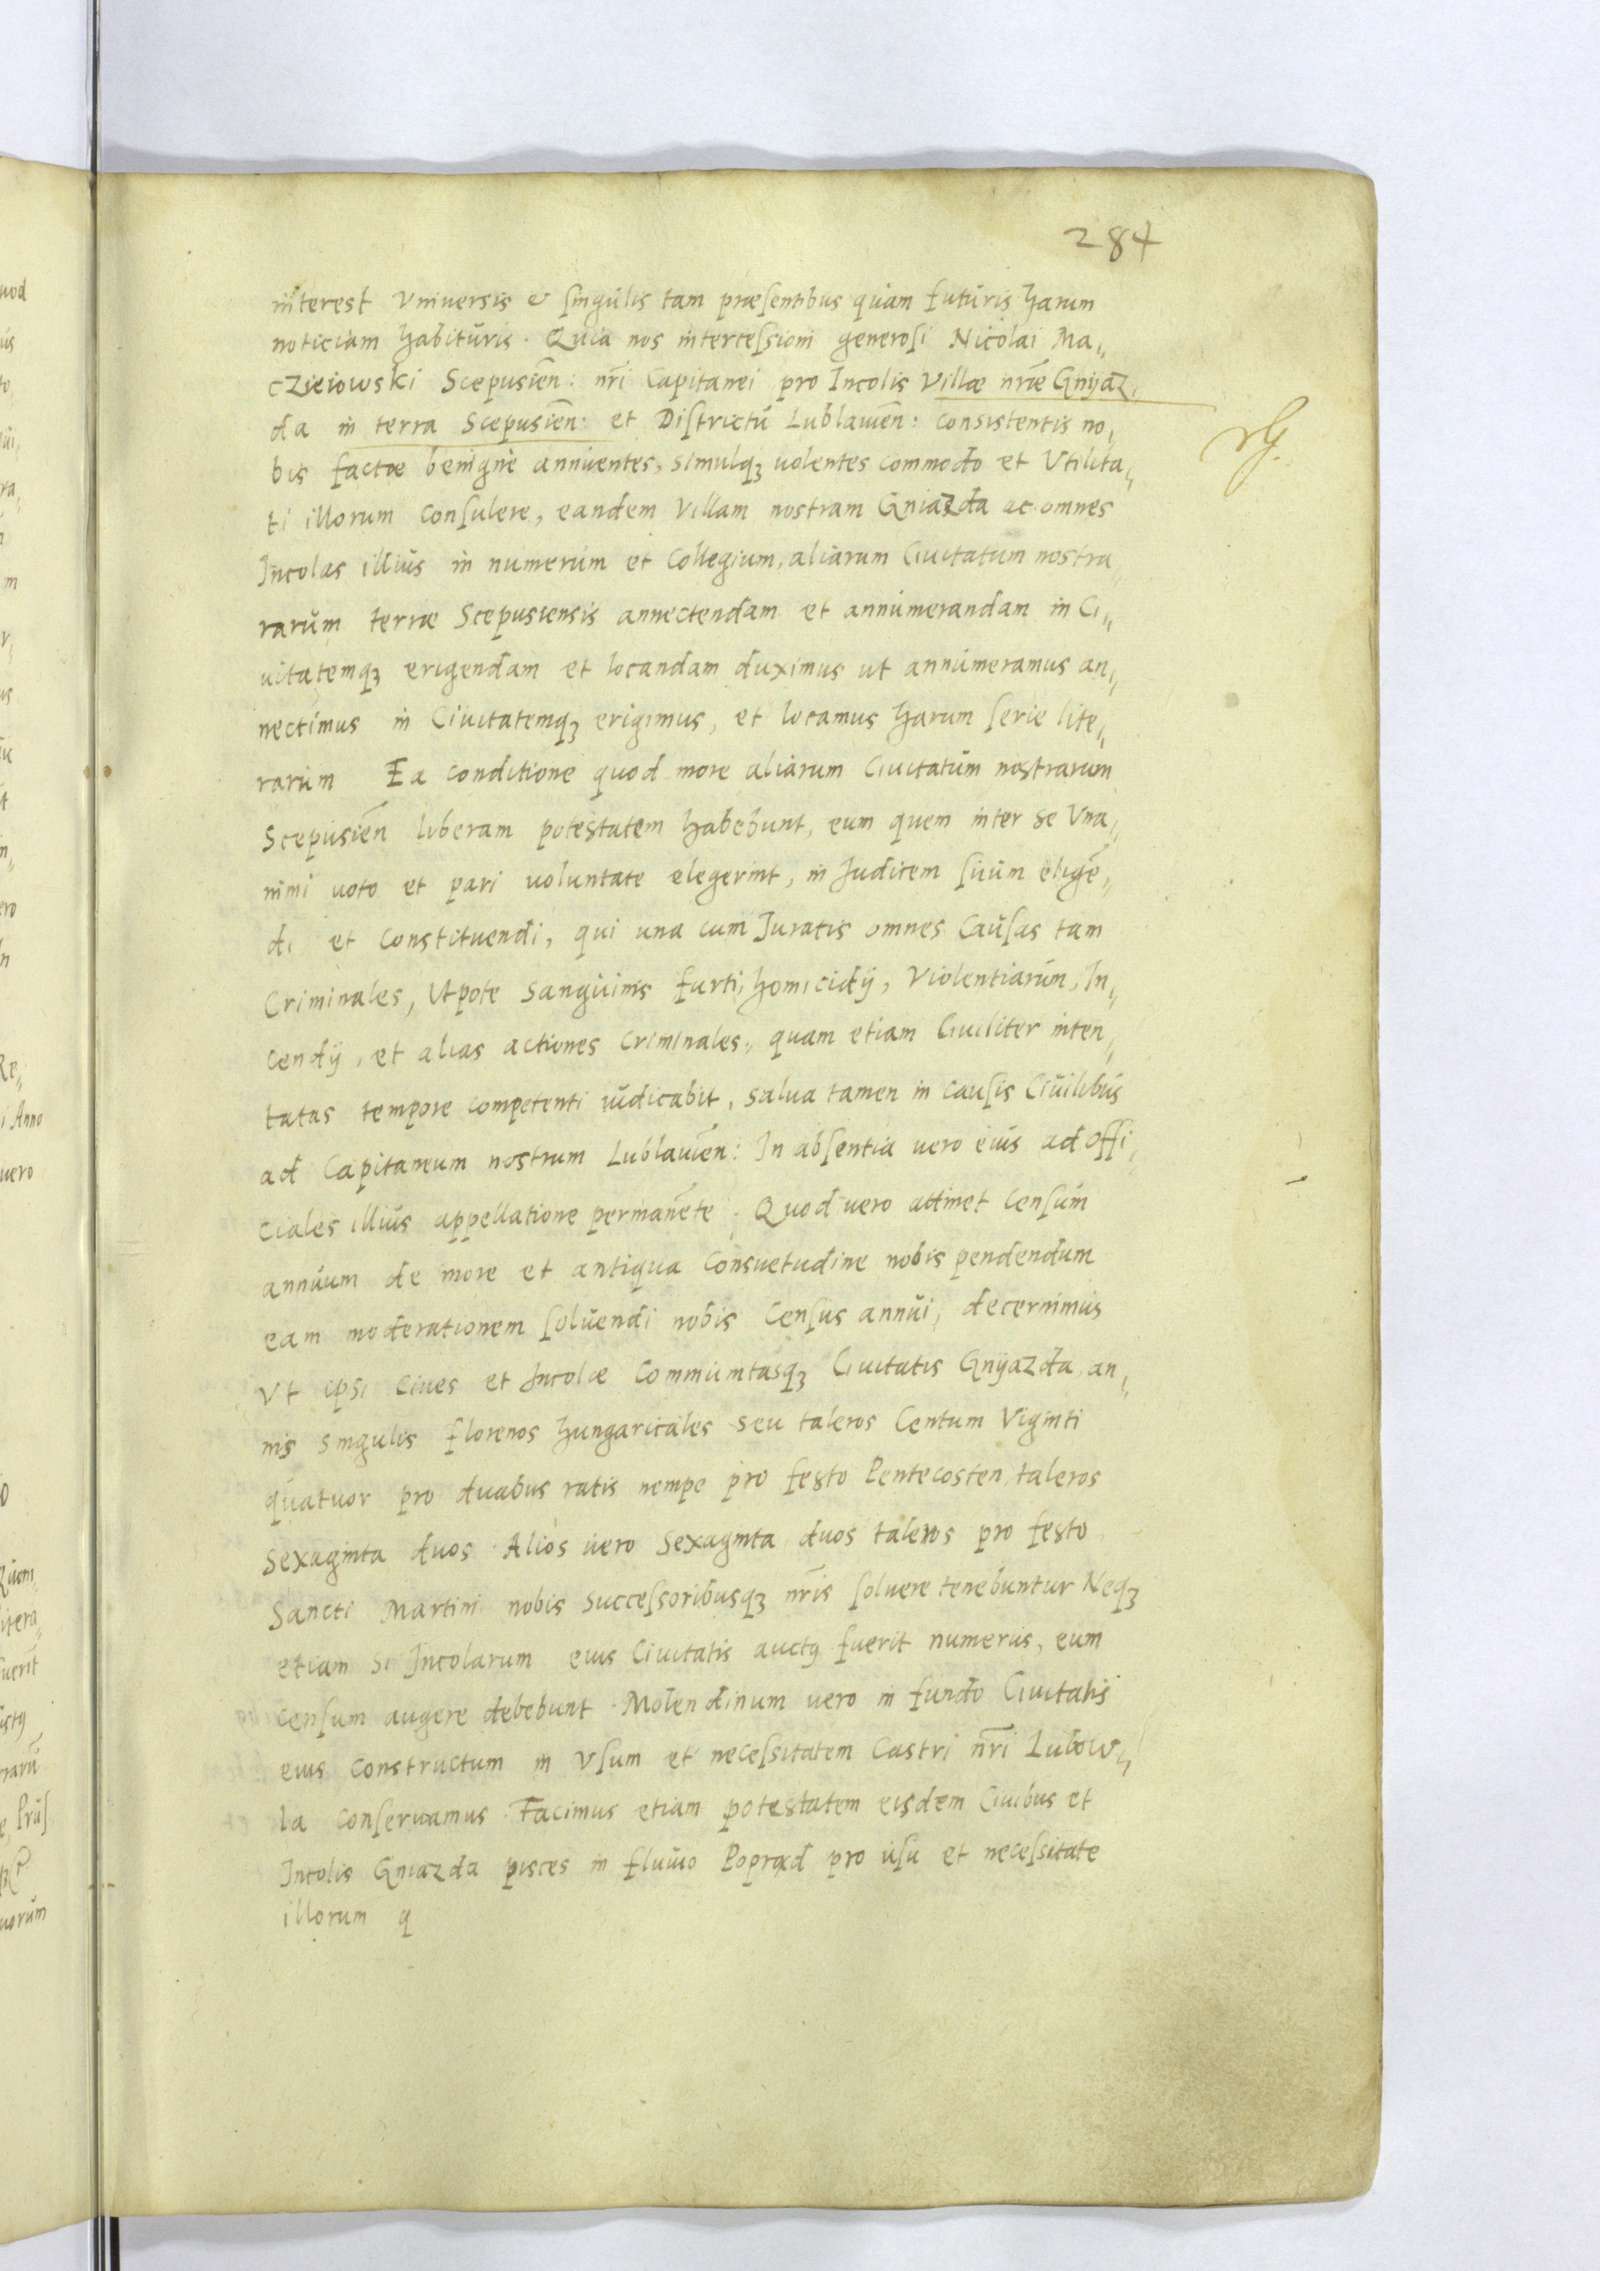 284
interest Vniuersis et singulis tam præsentibus quam futuris harum
noticiam habituris. Quia nos intercessioni generosi Nicolai Ma„
cZieiowski Scepusien: nri Capitanei pro Incolis Villæ nræ Gnyaz„
da in terra Scepusien: et Districtu Lublauien: consistentis no„
bis factæ benigne annuentes, simulqȝ uolentes commodo et Vtilita„
ti illorum consulere, eandem Villam nostram Gniazda ac omnes
Incolas illius in numerum et Collegium, aliarum Ciuitatum nostra„
rarum terræ Scepusiensis annectendam et annumerandam in Ci„
uitatemqȝ erigendam et locandam duximus ut annumeramus an„
nectimus in Ciuitatemqȝ erigimus, et locamus harum serie lite„
rarum Ea conditione quod more aliarum Ciuitatum nostrarum
Scepusien liberam potestatem habebunt, eum quem inter se Vna„
nimi uoto et pari uoluntate elegerint, in Judicem suum elige„
di et constituendi, qui una cum Juratis omnes Causas tam
Criminales, Utpote Sanguinis furti, homicidij, Violentiarum, In„
cendij, et alias actiones Criminales, quam etiam Ciuiliter inten„
tatas tempore competenti iudicabit, salua tamen in causis Ciuilibus
ad Capitaneum nostrum Lublauien: In absentia uero eius ad Offi„
ciales illius appellatione permanete. Quod uero attinet Censum
annuum de more et antiqua consuetudine nobis pendendum
eam moderationem soluendi nobis Census annui, decernimus
Vt ipsi Ciues et Incolæ Communitasqȝ Ciuitatis Gnyazda an„
nis singulis florenos hungaricales seu taleros Centum Viginti
quatuor pro duabus ratis nempe pro festo Pentecosten taleros
Sexaginta duos. Alios uero Sexaginta duos taleros pro festo
Sancti Martini nobis successoribusqȝ nris soluere tenebuntur Neqȝ
etiam si Incolarum eius Ciuitatis auctꝰ fuerit numerus, eum
censum augere debebunt. Molendinum uero in fundo Ciuitatis
eius constructum in Vsum et necessitatem Castri nri Lubow„
la conseruamus. Facimus etiam potestatem eisdem Ciuibus et
Incolis Gniazda pisces in fluuio Poprad pro usu et necessitate
illorum q